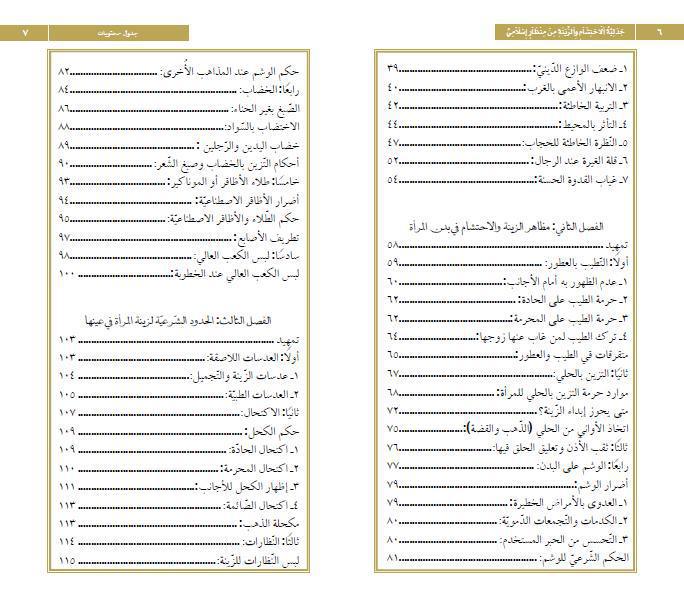 ٦ جدليّة الاحتشام والزّينة من منظار إسلاميّ
١ـ ضعف الوازع الدّينيّ: ٣٩
٢ـ الانبهار الأعمى بالغرب: ٤٠
٣ـ التربية الخاطئة: ٤٢
٤ـ التأثر بالمحيط: ٤٤
٥ـ النّظرة الخاطئة للحجاب: ٤٧
٦ـ قلة الغيرة عند الرجال: ٥٢
٧ـ غياب القدوة الحسنة: ٥٤
الفصل الثاني: مظاهر الزينة والاحتشام في بدن المرأة
تمهيد ٥٨
أولًا: التّطيب بالعطور: ٥٩
١ـ عدم الظهور به أمام الأجانب: ٦٠
٢ـ حرمة الطيب على الحادة: ٦٢
٣ـ حرمة الطيب على المحرمة: ٦٢
٤ـ ترك الطيب لمن غاب عنها زوجها: ٦٤
متفرقات في الطيب والعطور: ٦٥
ثانيًا: التزين بالحلي: ٦٧
موارد حرمة التزين بالحلي للمرأة: ٦٨
متى يجوز إبداء الزّينة؟ ٧٢
اتخاذ الأواني من الحلي (الذّهب والفضة): ٧٥
ثالثًا: ثقب الأذن وتعليق الحلق فيها: ٧٦
رابعًا: الوشم على البدن: ٧٧
أضرار الوشم: ٧٩
١ـ العدوى بالأمراض الخطيرة: ٧٩
٢ـ الكدمات والتّجمعات الدّمويّة: ٨٠
٣ـ التّحسس من الحبر المستخدم: ٨٠
الحكم الشّرعيّ للوشم: ٨١
جدول محتويات ٧
حكم الوشم عند المذاهب الأُخرى: ٨٢
رابعًا: الخضاب: ٨٤
الصّبغ بغير الحناء: ٨٦
الاختضاب بالسّواد: ٨٨
خضاب اليدين والرّجلين: ٨٩
أحكام التّزين بالخضاب وصبغ الشّعر: ٩٠
خامسًا: طلاء الأظافر أو المونوكير: ٩٣
أضرار الأظافر الاصطناعيّة: ٩٤
حكم الطّلاء والأظافر الاصطناعيّة: ٩٥
تطريف الأصابع: ٩٧
سادسًا: لبس الكعب العالي: ٩٨
لبس الكعب العالي عند الخطوبة: ١٠٠
الفصل الثالث: الحدود الشّرعيّة لزينة المرأة في عينها
تمهيد ١٠٣
أولًا: العدسات اللاصقة: ١٠٣
١ـ عدسات الزّينة والتّجميل: ١٠٤
٢ـ العدسات الطبيّة: ١٠٥
ثانيًا: الاكتحال: ١٠٧
حكم الكحل: ١٠٩
١ـ اكتحال الحادّة: ١٠٩
٢ـ اكتحال المحرمة: ١١٠
٣ـ إظهار الكحل للأجانب: ١١١
٤ـ اكتحال الصّائمة: ١١٣
مكحلة الذهب: ١١٣
ثالثًا: النّظارات: ١١٤
لبس النّظارات للزّينة: ١١٥